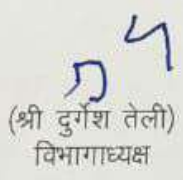 (श्री दुर्गेश तेली)
विभागाध्यक्ष